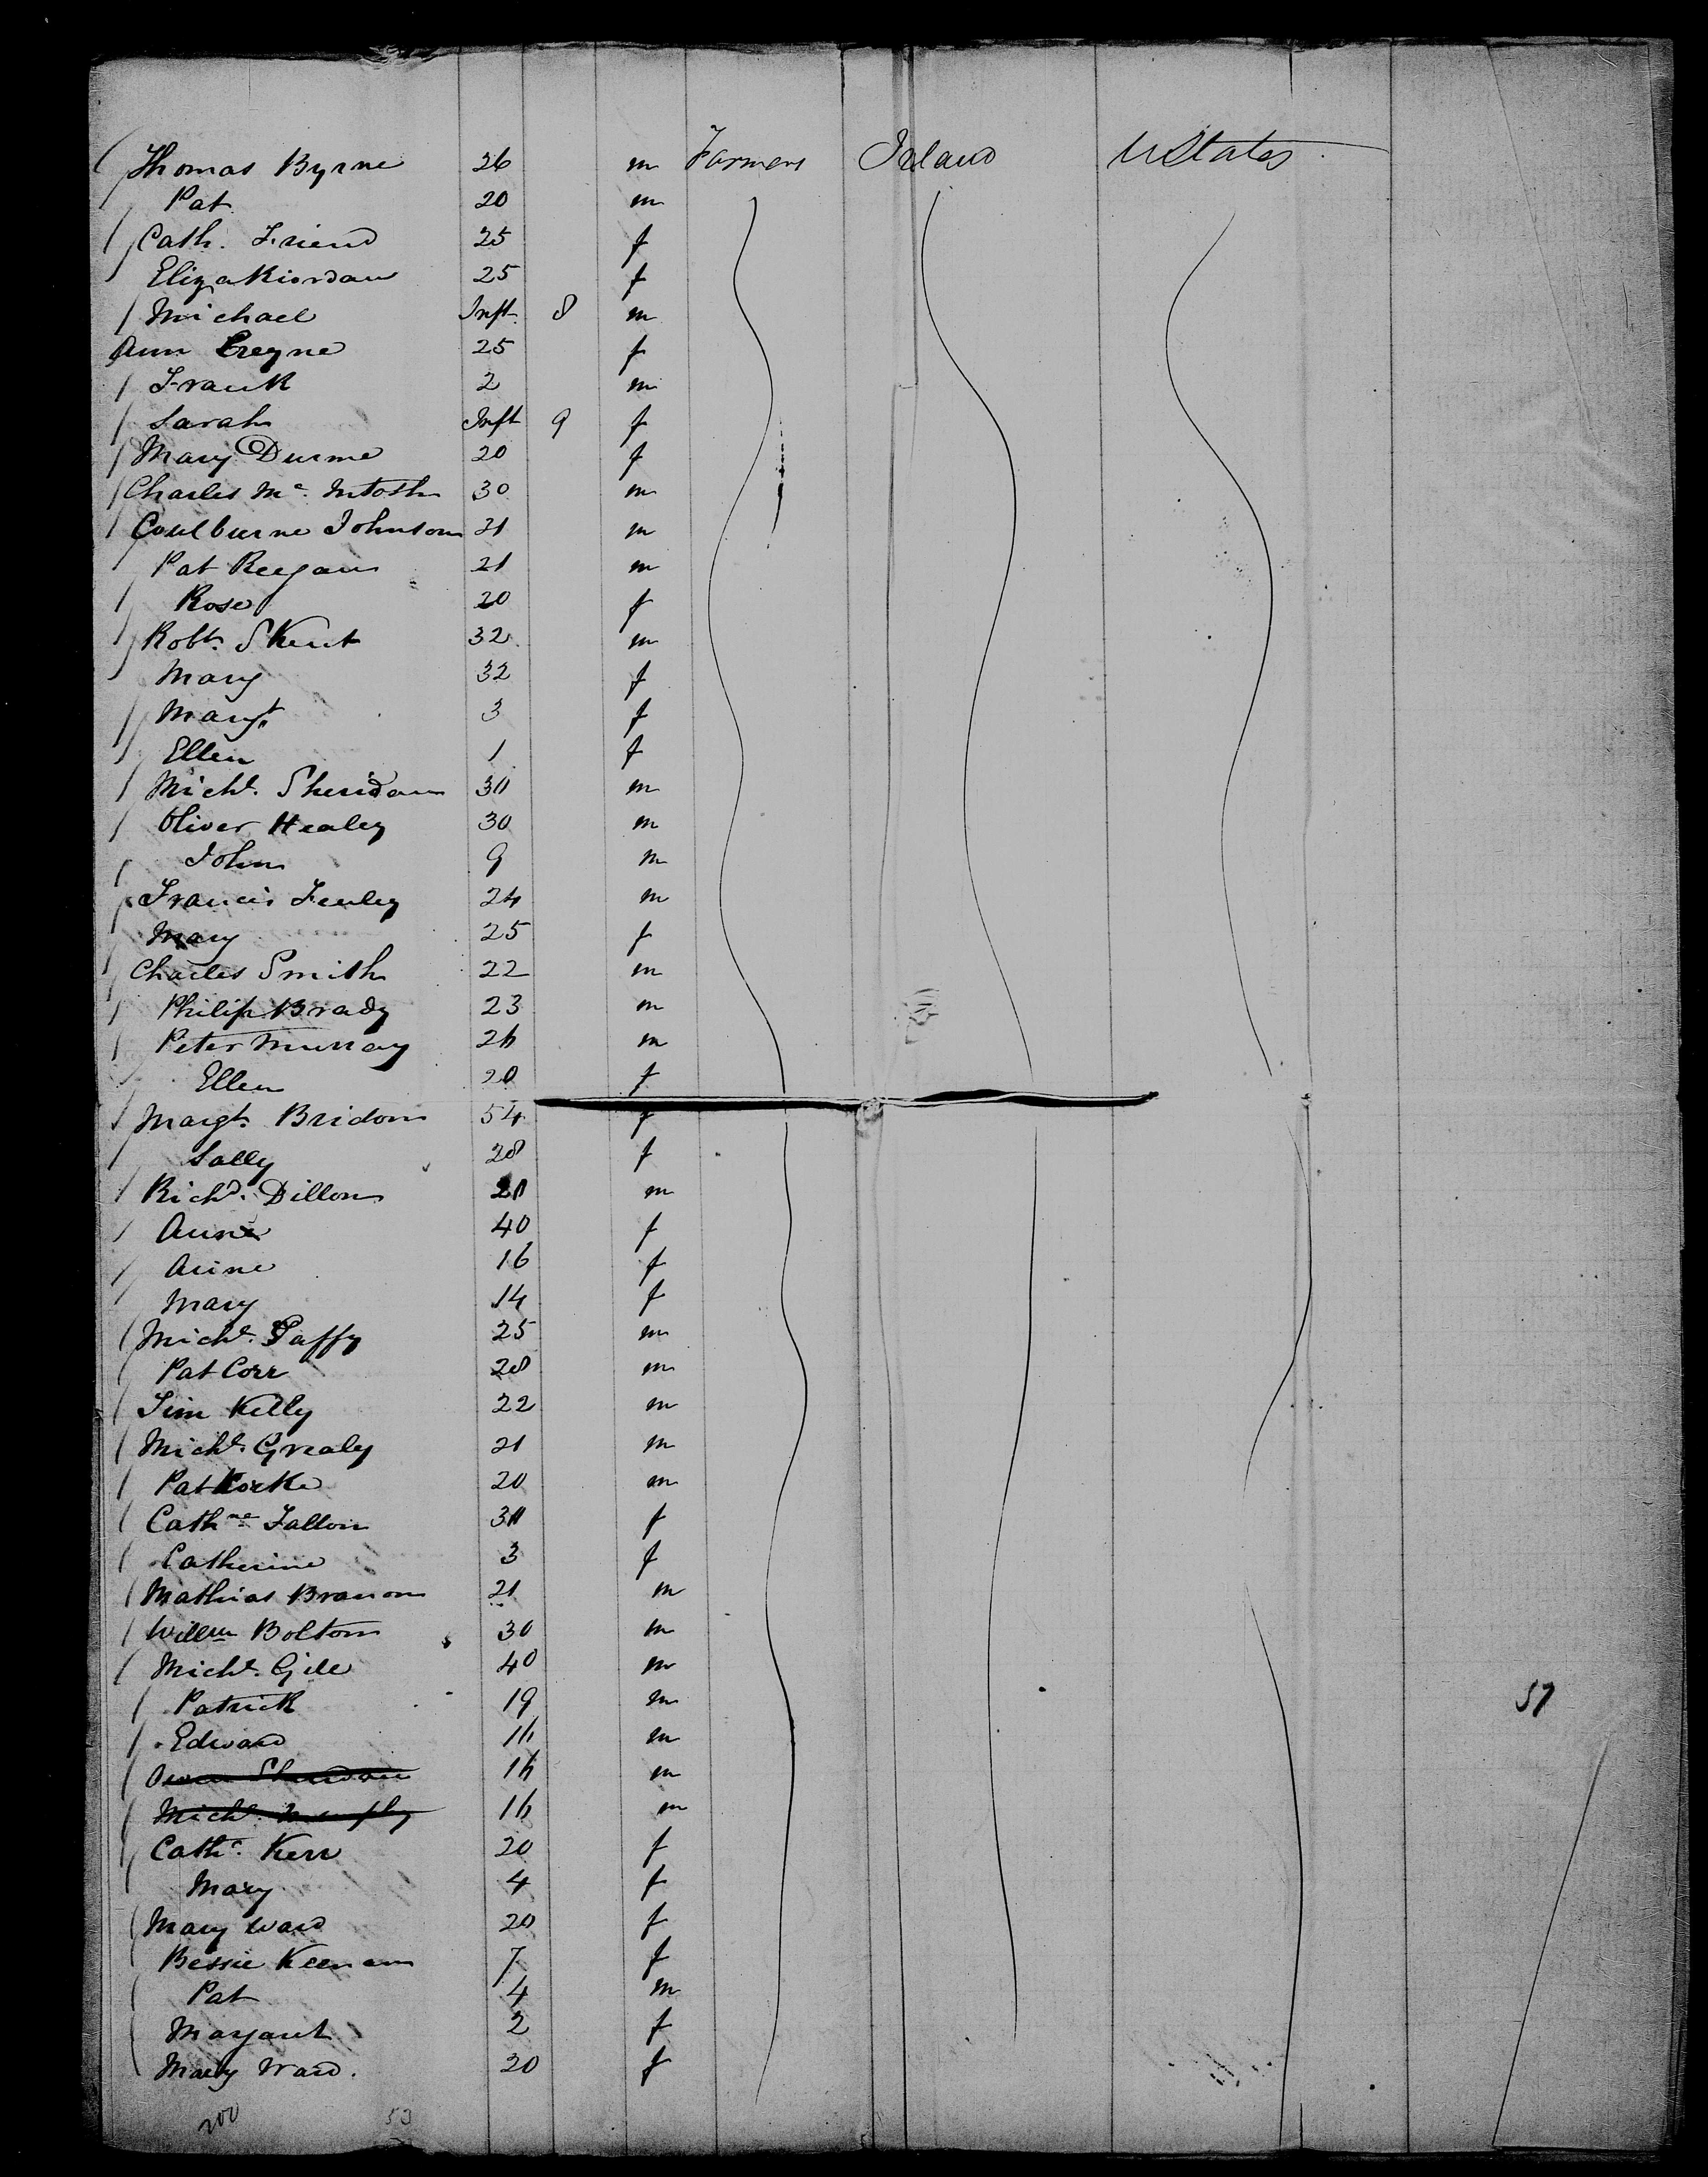 Thomas Byrne 26 m Farmers Ireland UStates
Pat 20 m
Cath. Friend 25 f
Eliza Riordan 25 f
Michael Inft. 8 m
Ann Creyne 25 f
Frank 2 m
Sarah Inft 9 f
Mary Durme 20 f
Charles Mc. Intosh 30 m
Coulburne Johnson 21 m
Pat Reegan 21 m
Rose 20 f
Robt. Skent 32 m
Mary 32 f
Margt. 3 f
Ellen 1 f
Michl. Sheridan 30 m
Oliver Healey 30 m
John 9 m
Francis Fenley 24 m
Mary 25 f
Charles Smith 22 m
Philip Brady 23 m
Peter Murray 26 m
Ellen 20 f
Margt. Bridon 54 f
Sally 28 f
Richd. Dillon m
Anne 40 f
Anne 16 f
Mary 14 f
Michl. Gaffy 25 m
Pat Corr 28 m
Jim Kelly 22 m
Michl. Grealy 21 m
Pat 20 m
Cathne Fallon 30 f
Catherine 3 f
Mathias Branon 21 m
Willm Bolton 30 m
Michl. Gill 40 m
Patrick 19 m
57
Edward 16 m
Owen Sheridan 16 m
Michl. Murphy 16 m
Cathe. Kerr 20 f
Mary 4 f
Mary Ward 20 f
Bessie Keenan 7 f
Pat 4 m
Margaret 2 f
Mary Ward. 20 f
200 53